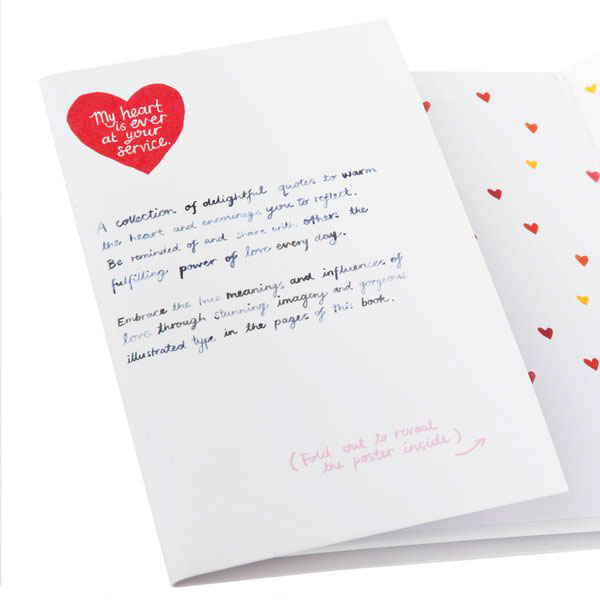 My heart
is ever
at your
service.
A collection of delightful quotes to warm
the heart and encourage you to reflect.
Be reminded of and share with others the
fulfilling power of love every day.
Embrace the true meanings and influences of
love through stunning imagery and gorgeous
illustrated type in the pages of this book.
(Fold out to reveal
the poster inside)